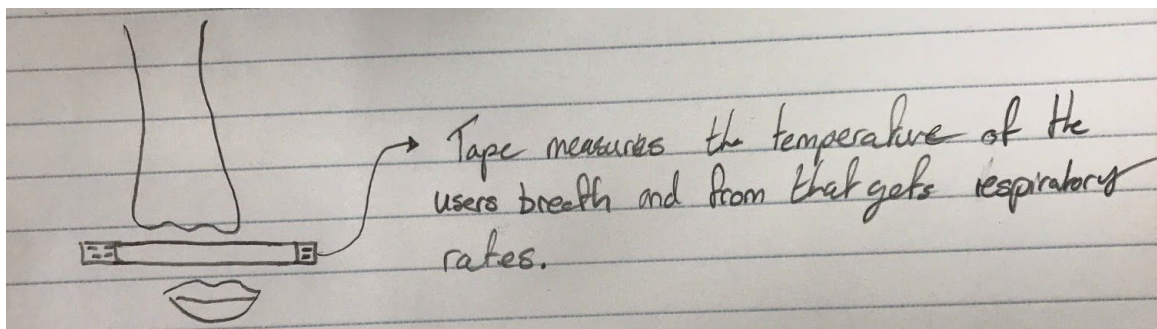 Tape measures the temperature of the
users breath and from that gets respiratory
rates.